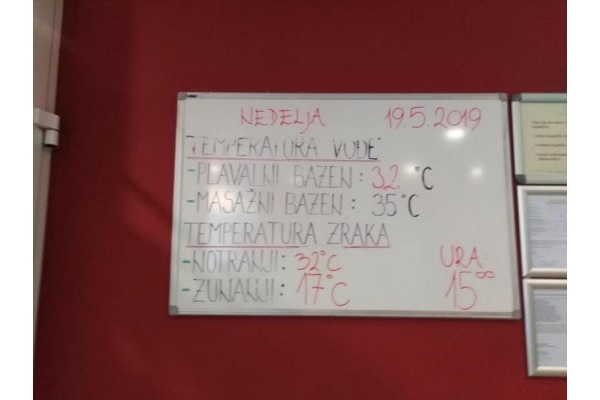 NEDELJA 19.5.2019
TEMPERATURA VODE
-PLAVALNI BAZEN: 32 °C
-MASAŽNI BAZEN: 35°C
TEMPERATURA ZRAKA
-NOTRANJI: 32°C
-ZUNANJI: 17°C
URA:
15⁰⁰